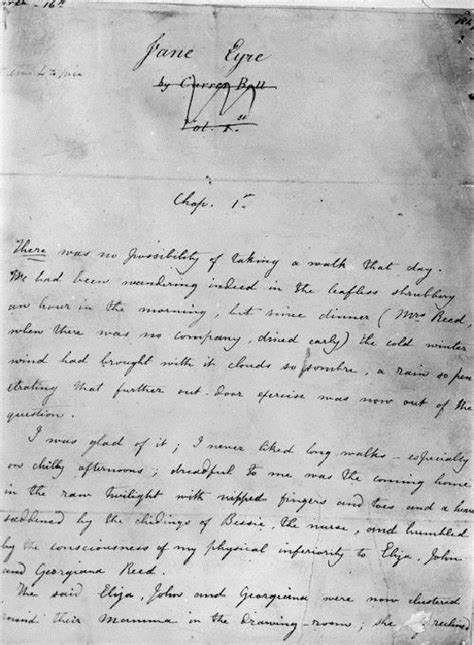 Jane Eyre
by Currer Bell
Vol. 1st
Chap. 1st
There was no possibility of taking a walk that day.
We had been wandering indeed in the leafless shrubbery
an hour in the morning, but since dinner (Mrs Reed,
when there was no company, dined early) the cold winter
wind had brought with it clouds so sombre, a rain so pen
etrating that further out-door exercise was now out of the
question.
I was glad of it; I never liked long walks - especially
on chilly afternoons; dreadful to me was the coming home
in the raw twilight with nipped fingers and toes and a hear
saddened by the chidings of Bessie, the nurse, and humbled
by the consciousness of my physical inferiority to Eliza, John
and Georgiana Reed.
The said Eliza, John and Georgiana were now clustered
round their Mamma in the drawing-room; she reclined